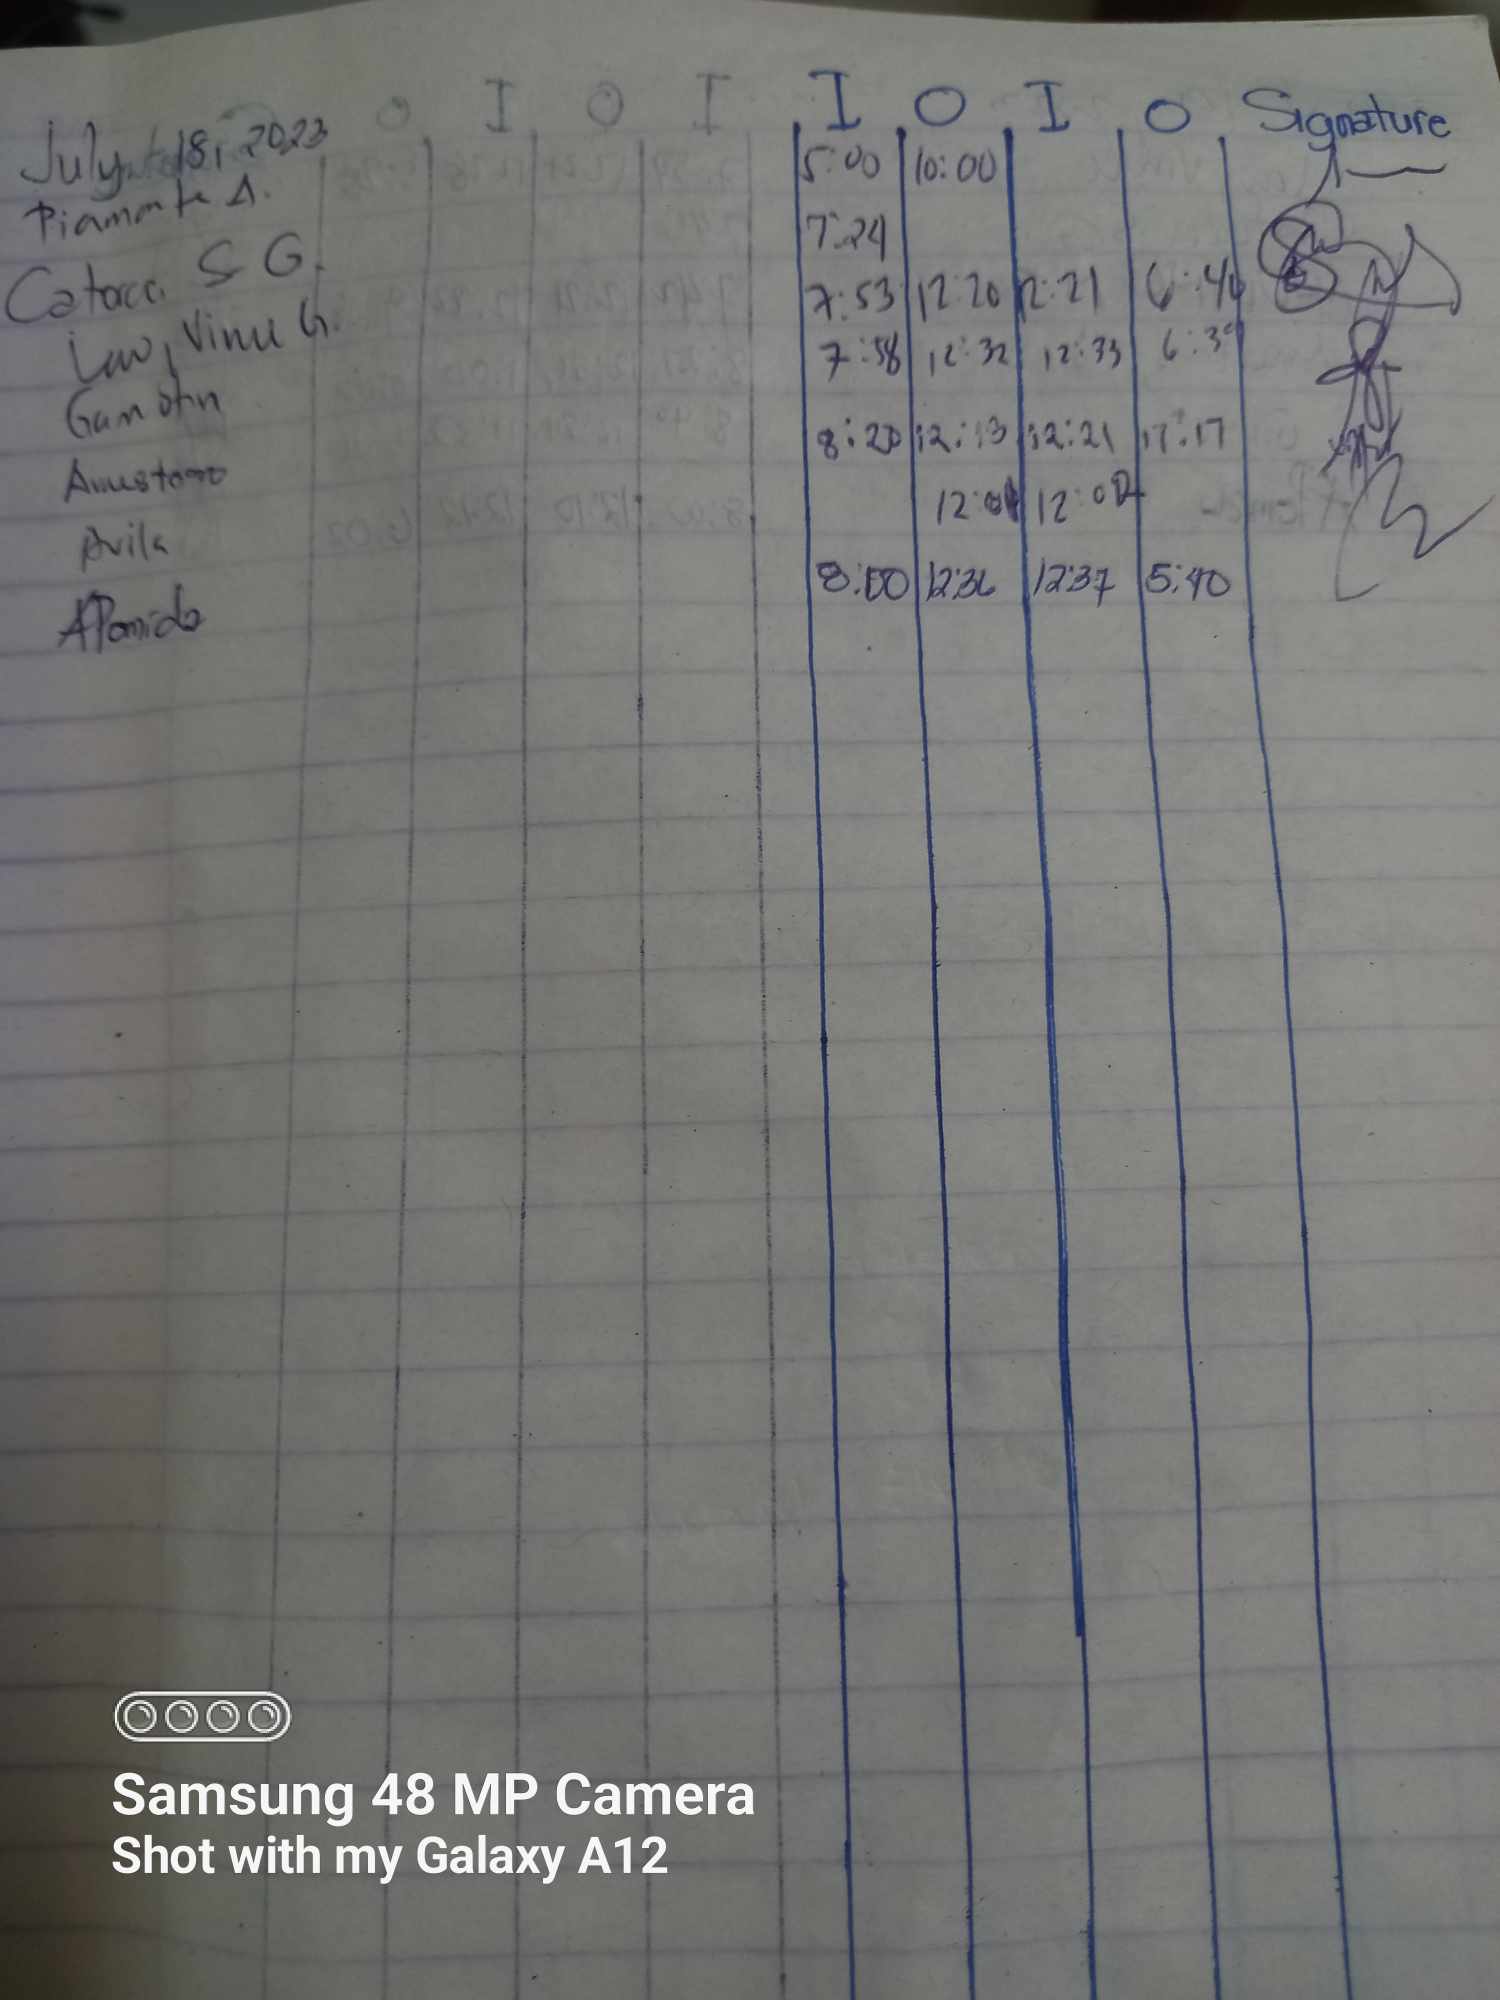 July 18, 2023 I O I O Signature
Piamonte A. 5:00 10:00
Catacc. S G. 7:24
Law, Vinu G. 7:53 12:20 12:21 6:46
Gamotin 7:58 12:32 12:33 6:39
8:20 12:13 12:21 17:17
Avila 12:01 12:02
Alomida 8:00 12:36 12:37 5:40
Samsung 48 MP Camera
Shot with my Galaxy A12